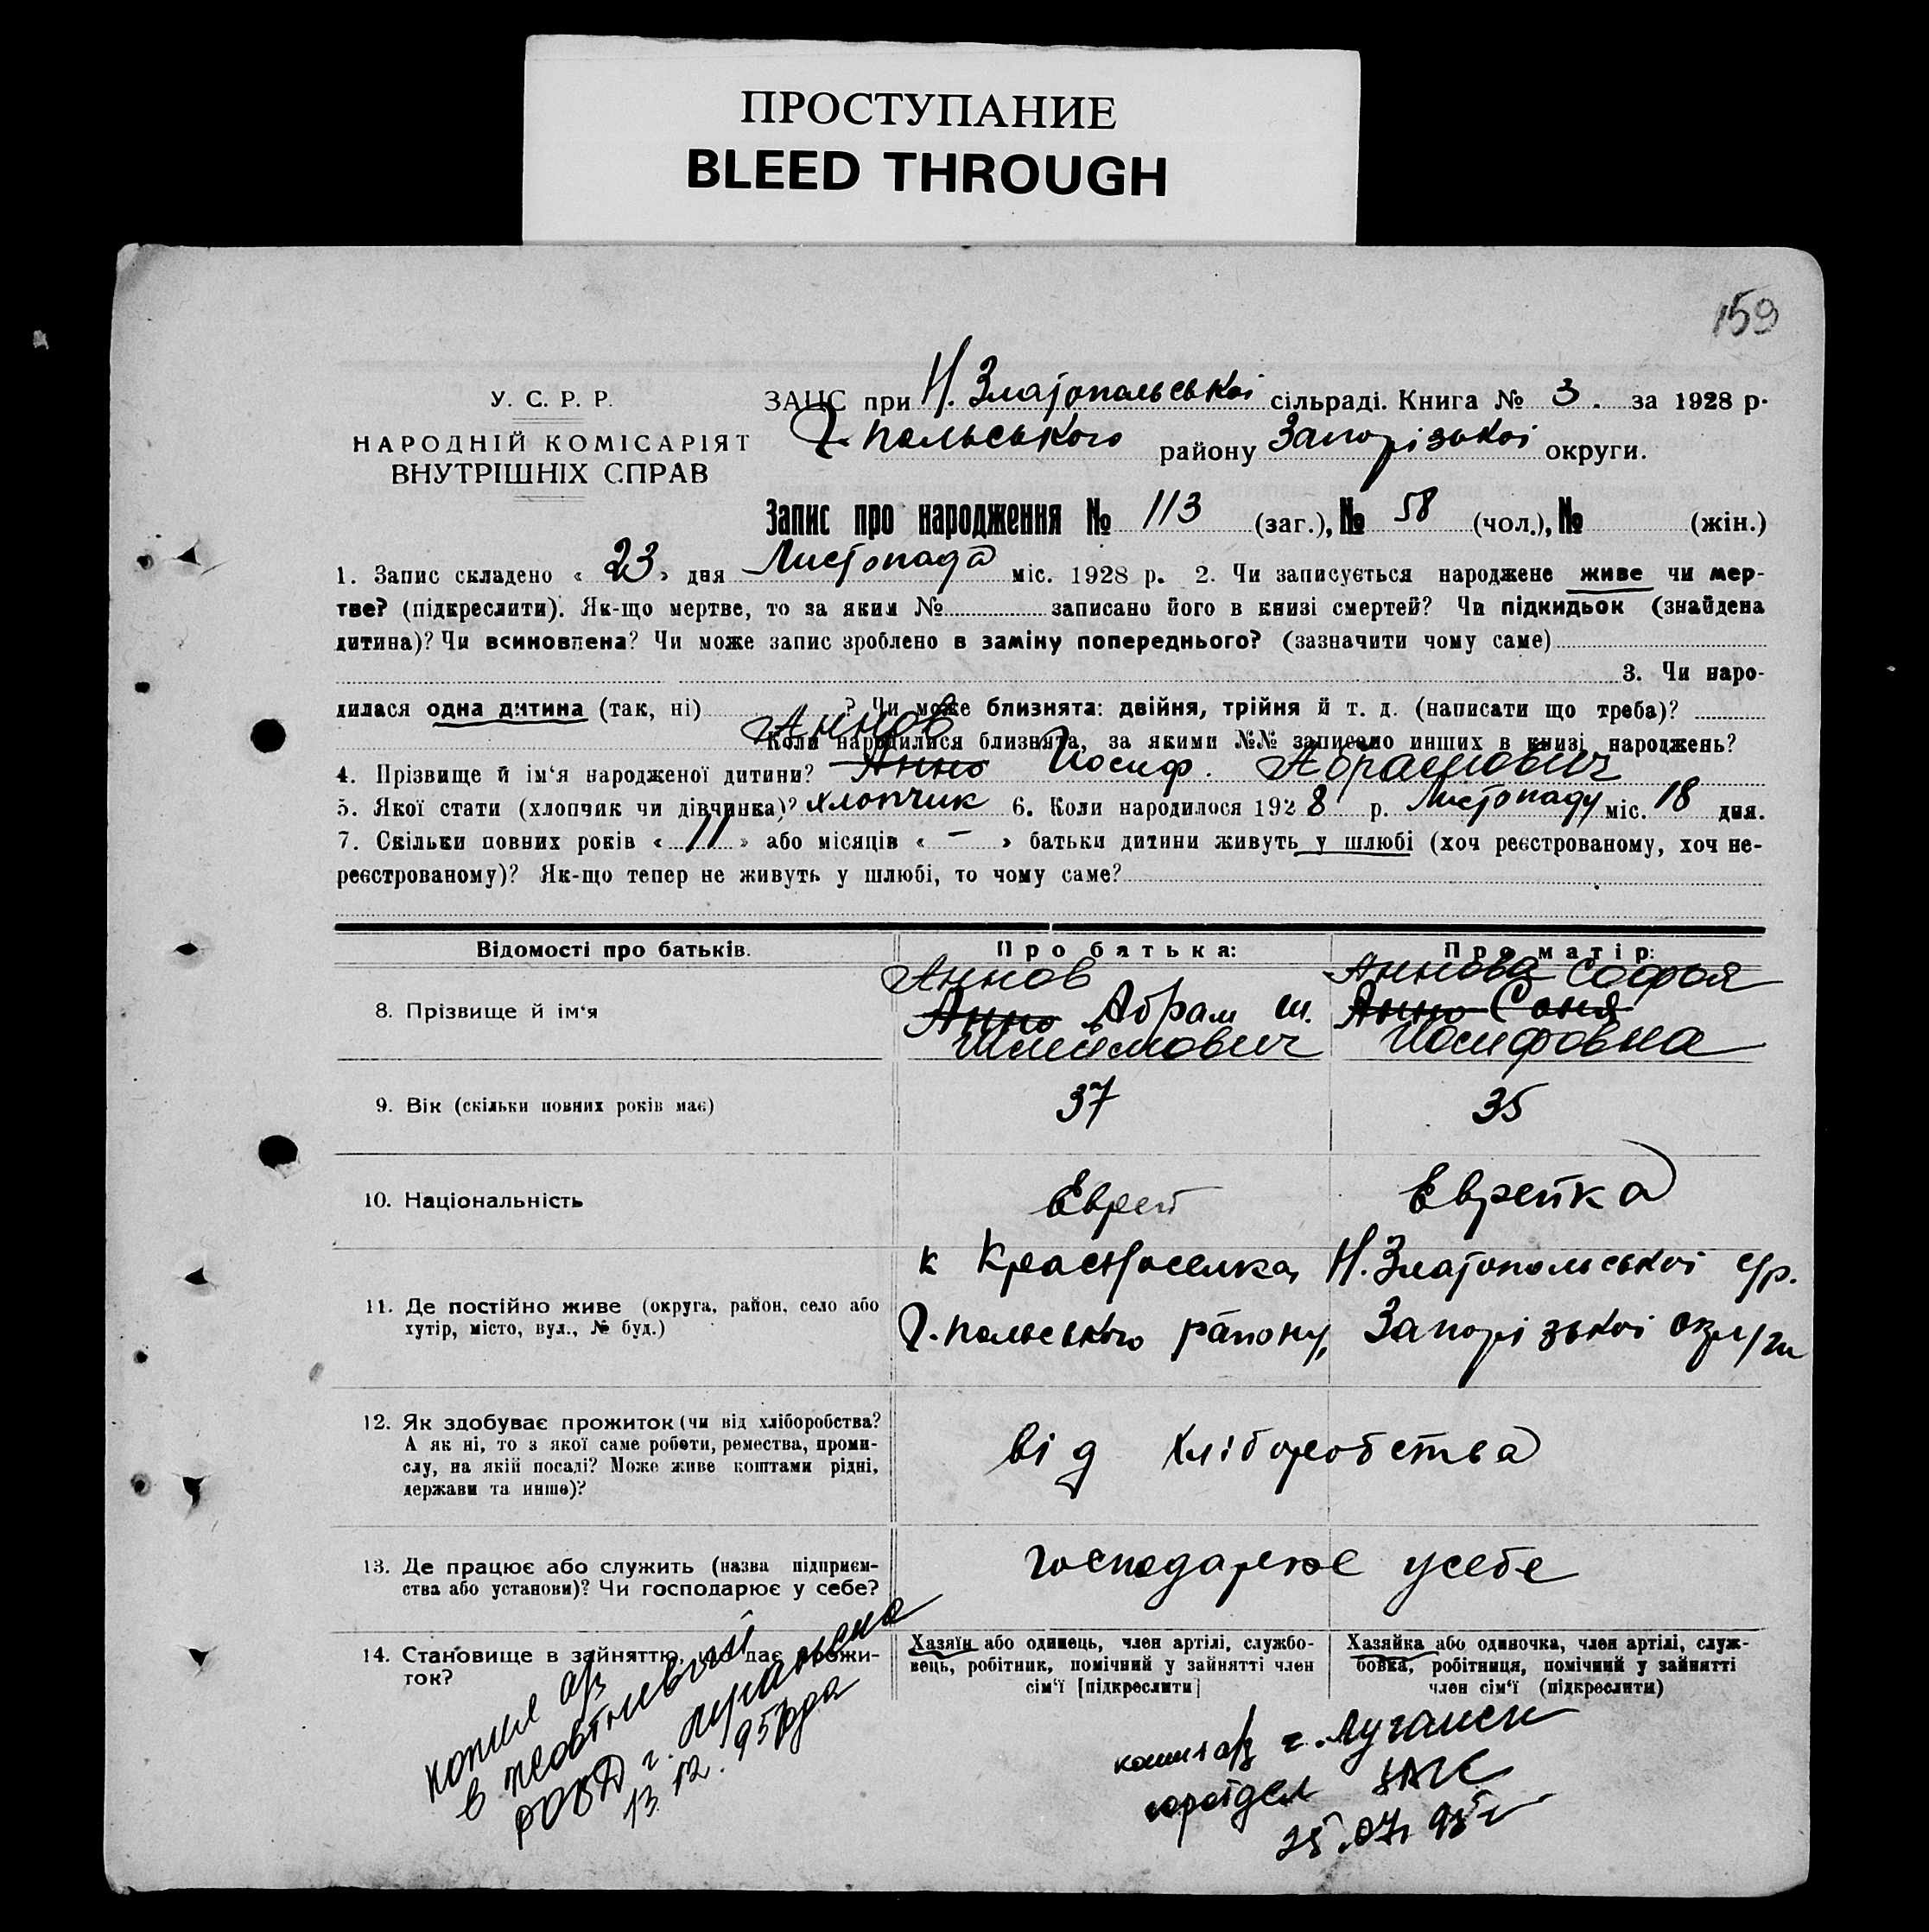 ПРОСТУПАНИЕ
BLEED THROUGH
159
У. С. Р. Р.
НАРОДНІЙ КОМІСАРІЯТ
ВНУТРІШНІХ СПРАВ
ЗАЦС при Н. Златопольській сільраді. Книга № 3. за 1928 р.
польського району Запорізькоі округи.
Запис про народження № 113 (заг.), № 58 (чол.), № (жін.)
1. Запис складено « 23 » дня Листопада міс. 1928 р. 2. Чи записується народжене живе чи мер-
тве? (підкреслити). Як-що мертве, то за яким № записано його в книзі смертей? Чи підкидьок (знайдена
дитина)? Чи всиновлена? Чи може запис зроблено в заміну попереднього? (зазначити чому саме)
3. Чи наро-
дилася одна дитина (так, ні) ? Чи може близнята: двійня, трійня й т. д. (написати що треба)?
Аннов
Коли народилися близнята, за якими №№ записано инших в книзі народжень?
4. Прізвище й ім'я народженої дитини? Анно Иосиф. Абрамович
5. Якої стати (хлопчик чи дівчинка)? хлопчик 6. Коли народилося 1928 р. Листопаду міс. 18 дня.
7. Скільки повних років « 11 » або місяців « — » батьки дитини живуть у шлюбі (хоч реєстрованому, хоч не-
реєстрованому)? Як-що тепер не живуть у шлюбі, то чому саме?
Відомості про батьків. Про батька: Про матір:
Аннов Аннова Софья
8. Прізвище й ім'я Анно Абрам Ш. Анно Соня
Шлиомович Иосифовна
9. Вік (скільки повних років має) 37 35
10. Національність Еврей Еврейка
к Красноселка, Н. Златопольськоі с/р.
11. Де постійно живе (округа, район, село або
хутір, місто, вул., № буд.)
польського района, Запорізькоі округи
12. Як здобуває прожиток (чи від хліборобства?
А як ні, то з якої саме роботи, ремества, проми-
слу, на якій посаді? Може живе коштами рідні,
держави та инше)?
від хліборобства
13. Де працює або служить (назва підприєм-
ства або установи)? Чи господарює у себе?
господарює усебе
14. Становище в зайняттю, що дає прожи-
ток?
Хазяїн або одинець, член артілі, службо-
вець, робітник, помічний у зайнятті член
сім'ї [підкреслити]
Хазяйка або одиночка, член артілі, служ-
бовка, робітниця, помічний у зайнятті
член сім'ї (підкреслити)
копия а/з
в
РОВД г.
13.12.
г. Луганск
горотдел ЗАГС
25.07. 95г